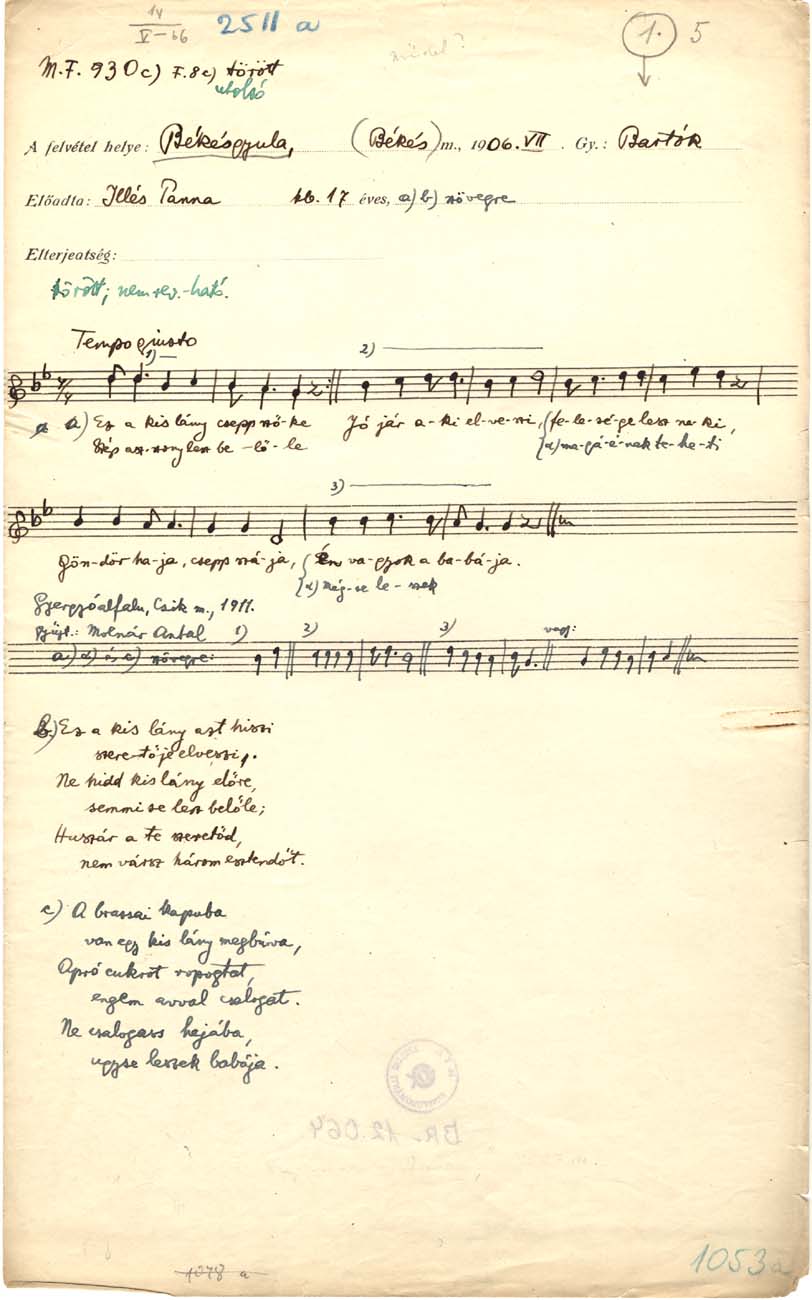 14
V–66
2511 a
1. 5
M.F. 930c) F.8c) törött
utolsó
A felvétel helye: Békésgyula, (Békés) m., 1906. VII. Gy.: Bartók
Előadta: Illés Panna kb. 17 éves, a) b) szövegre
Elterjeatség:
törött; nem rev.-ható.
Tempo giusto
1)
2)
a) Ez a kis lány csepp ször-ke Jó jár a-ki el-ve-szi, (fe-le-sé-ge lesz ne-ki,
Szép asz-szony lesz be-lő-le (α) ma-gá-é-nak te-he-ti
3)
Gön-dör ha-ja, csepp szá-ja, (Én va-gyok a ba-bá-ja.
(α) még-se le-szek
Gyergyóalfalu, Csik m., 1911.
gyűjt.: Molnár Antal 1) 2) 3) vagy:
a.) α) és c) szövegre:
b.) Ez a kis lány azt hiszi
szeretője elveszi,.
Ne hidd kis lány előre,
semmi se lesz belőle;
Huszár a te szeretőd,
nem vársz három esztendőt.
c) A brassai kapuba
van egy kis lány megbúva,
Apró cukrot ropogtat,
engem avval csalogat.
Ne csalogass hejába,
ugyse leszek babája.
BR. 12.064
1078 a
1053a